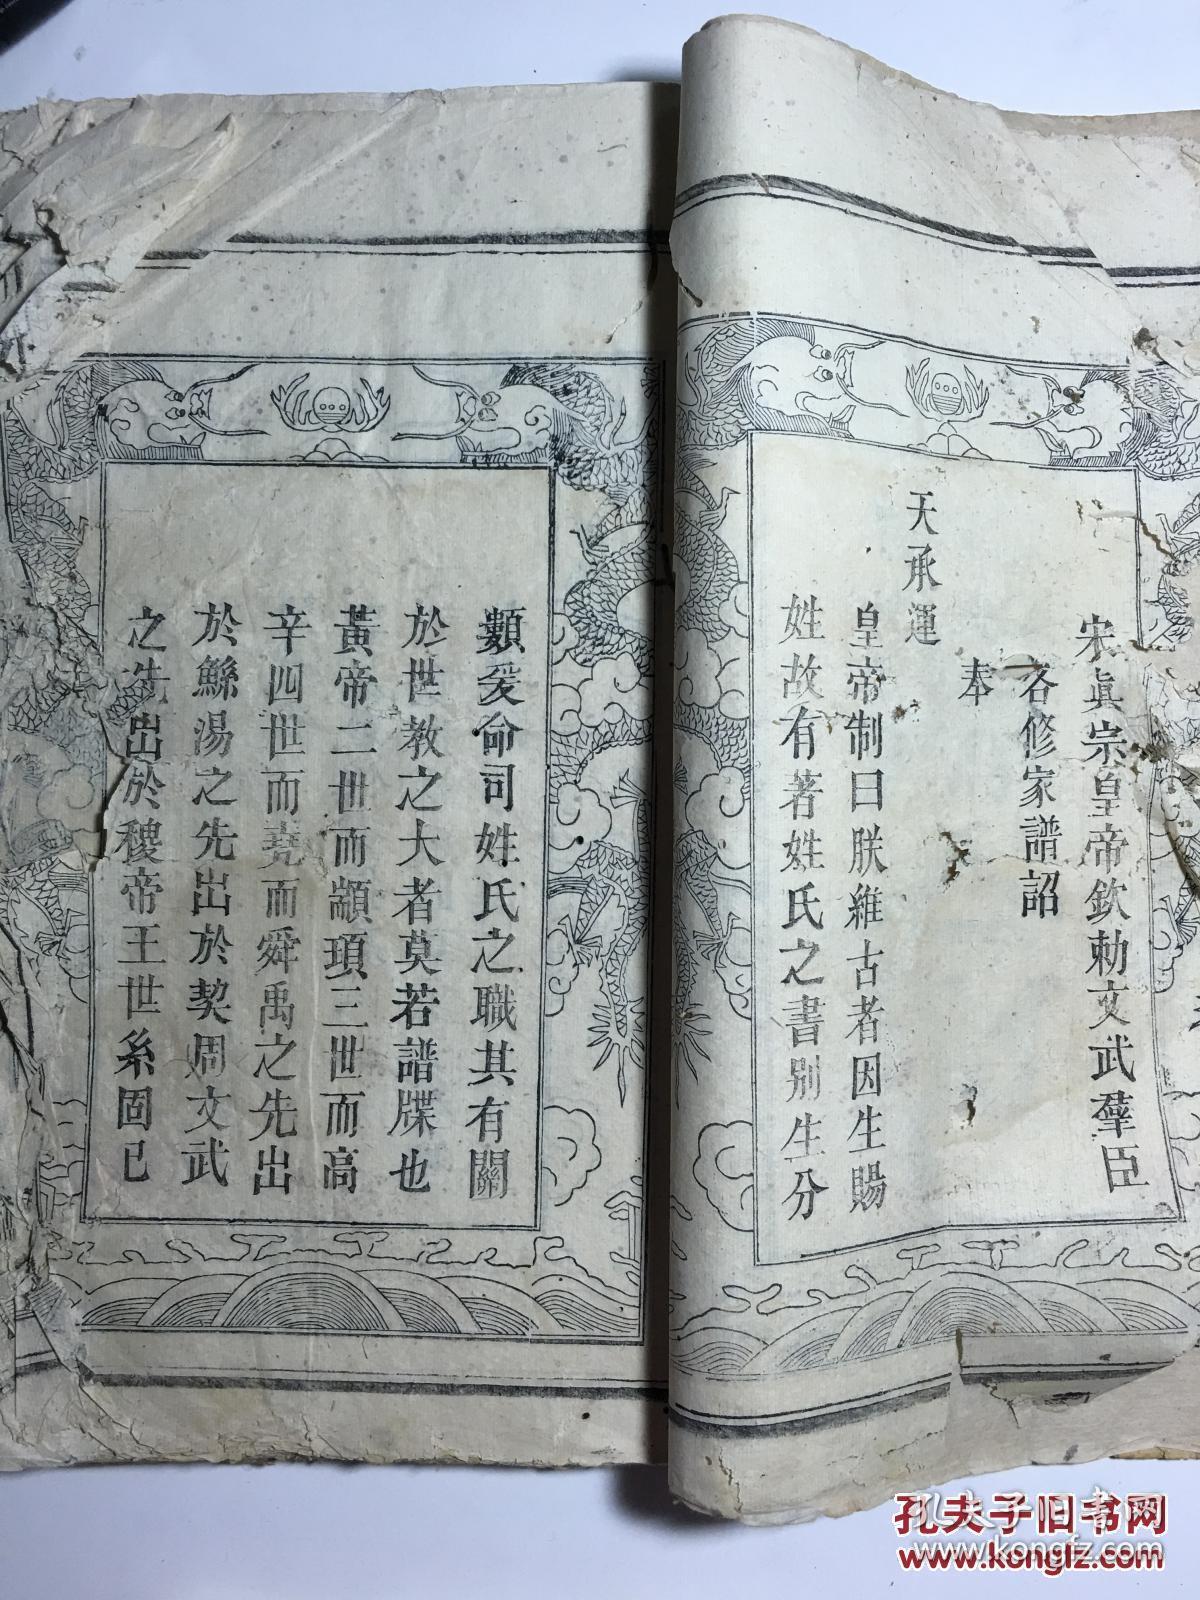 宋眞宗皇帝欽勅文武羣臣
各修家譜詔
奉
天承運
皇帝制曰朕維古者因生賜
姓故有著姓氏之書別生分
類爰命司姓氏之職其有關
於世教之大者莫若譜牒也
黃帝二世而顓頊三世而高
辛四世而堯而舜禹之先出
於鯀湯之先出於契周文武
之先出於稷帝王世系固已
孔夫子旧书网
www.kongfz.com